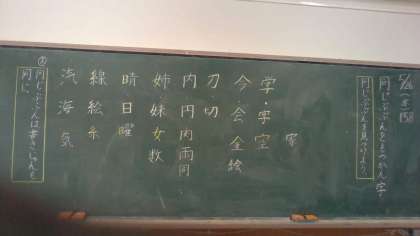 5/26 (つき) P58
同じぶぶんをもつかん字
同じぶぶんを見つけよう。
家
学・字・空
今・会・全 絵
刀 切
内 円 肉 両 同
姉 妹 女 数
晴・日 曜
線 絵 糸
汽 海 気
同じぶぶんは書きじゅんも同じ。